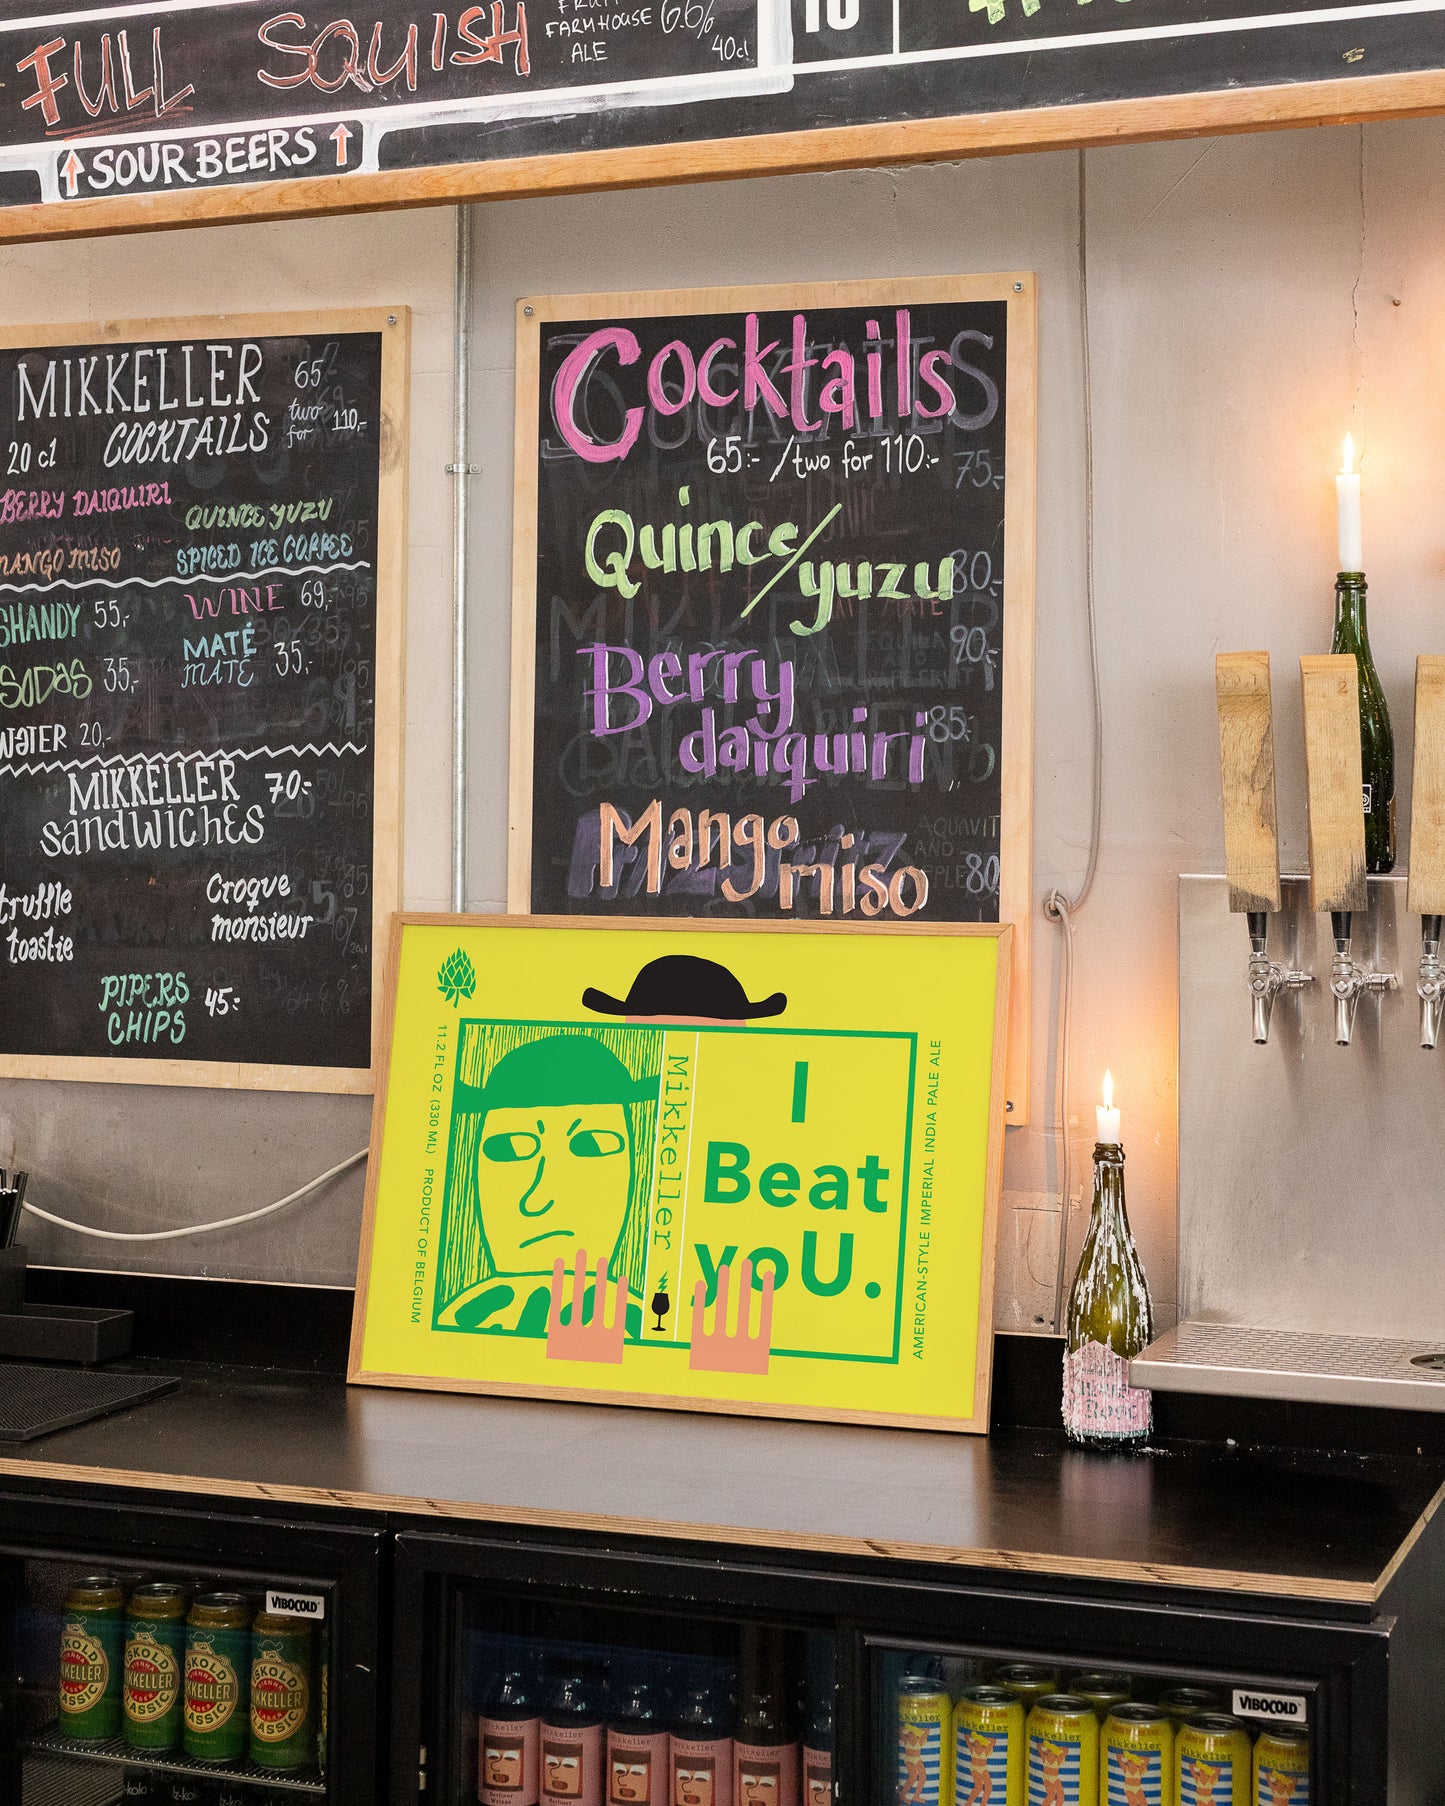 FULL SQUISH
FRUIT
FARMHOUSE 6.6%
ALE
40cl
10
↑ SOUR BEERS ↑
MIKKELLER 65-
20 cl COCKTAILS two for 110,-
BERRY DAIQUIRI
QUINCE YUZU
MANGO MISO
SPICED ICE COFFEE
SHANDY 55,-
WINE 69,-
SODAS 35,-
MATÉ MATÉ 35,-
WATER 20,-
MIKKELLER 70:-
SANDWICHES
truffle
toastie
Croque
monsieur
PIPERS 45:-
CHIPS
Cocktails
65:- /two for 110:-
75:-
Quince/
yuzu
80:-
90:-
Berry
daiquiri
85:-
Mango
miso
AQUAVIT
AND
80:-
11.2 FL OZ (330 ML) PRODUCT OF BELGIUM
Mikkeller
I
Beat
yoU.
AMERICAN-STYLE IMPERIAL INDIA PALE ALE
VIBOCOLD
VIBOCOLD
SKOLD
VIENNA
MIKKELLER
LAGER
CLASSIC
Mikkeller
Berliner
Mikkeller